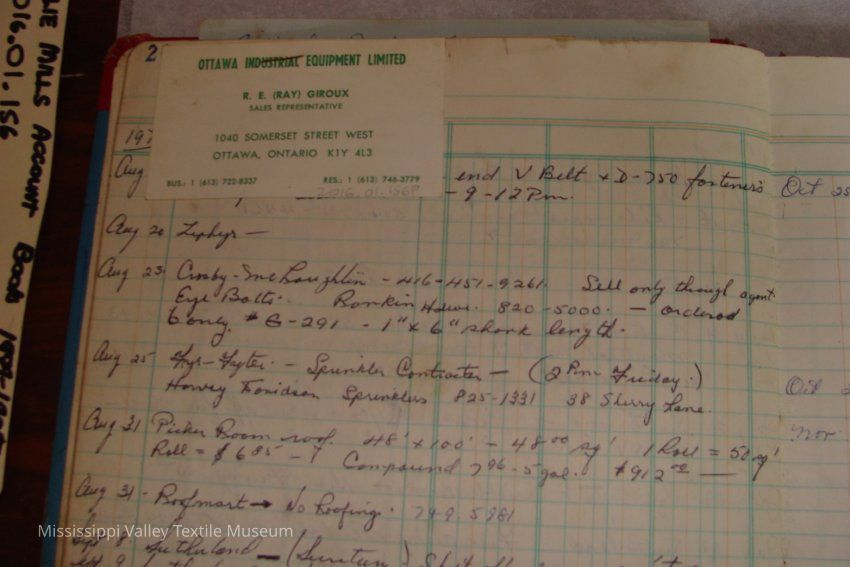 LIE MILLS ACCOUNT BOOK
016.01.156
2
OTTAWA INDUSTRIAL EQUIPMENT LIMITED
R. E. (RAY) GIROUX
SALES REPRESENTATIVE
1040 SOMERSET STREET WEST
OTTAWA, ONTARIO K1Y 4L3
BUS.: 1 (613) 722-8337 RES.: 1 (613) 746-3779
2016.01.156P
197
Aug end V Belt + D-750 fasteners
- 9-12 Pm.
Aug 20 Zephyr —
Aug 23 Crosby-McLoughlin - 416-451-9261. Sell only though agent
Eye Bolts. Rankin 820-5000. — ordered
6 only. # G-291 - 1" x 6" shank length.
Aug 25 Fyr-Fyter. - Sprinkler Contracter — (2 Pm Friday.)
Harvey Sprinklers 825-1331 38 Sherry Lane.
Aug 31 Picker Room roof. 48' x 100' - 4800 sq' 1 Roll = 50 sq'
Roll = $6.85 - Compound 7.96 - 5 gal. $912.00 —
Aug 31 - Roofmart → No Roofing. 749-5981
Sept 8. Sutherland — (
Oct 25
Oct
Nov
Mississippi Valley Textile Museum